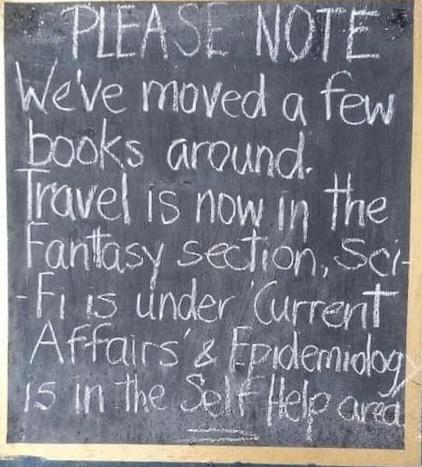 PLEASE NOTE
We've moved a few
books around.
Travel is now in the
Fantasy section, Sci-
-Fi is under 'Current
Affairs' & Epidemiology
is in the Self Help area